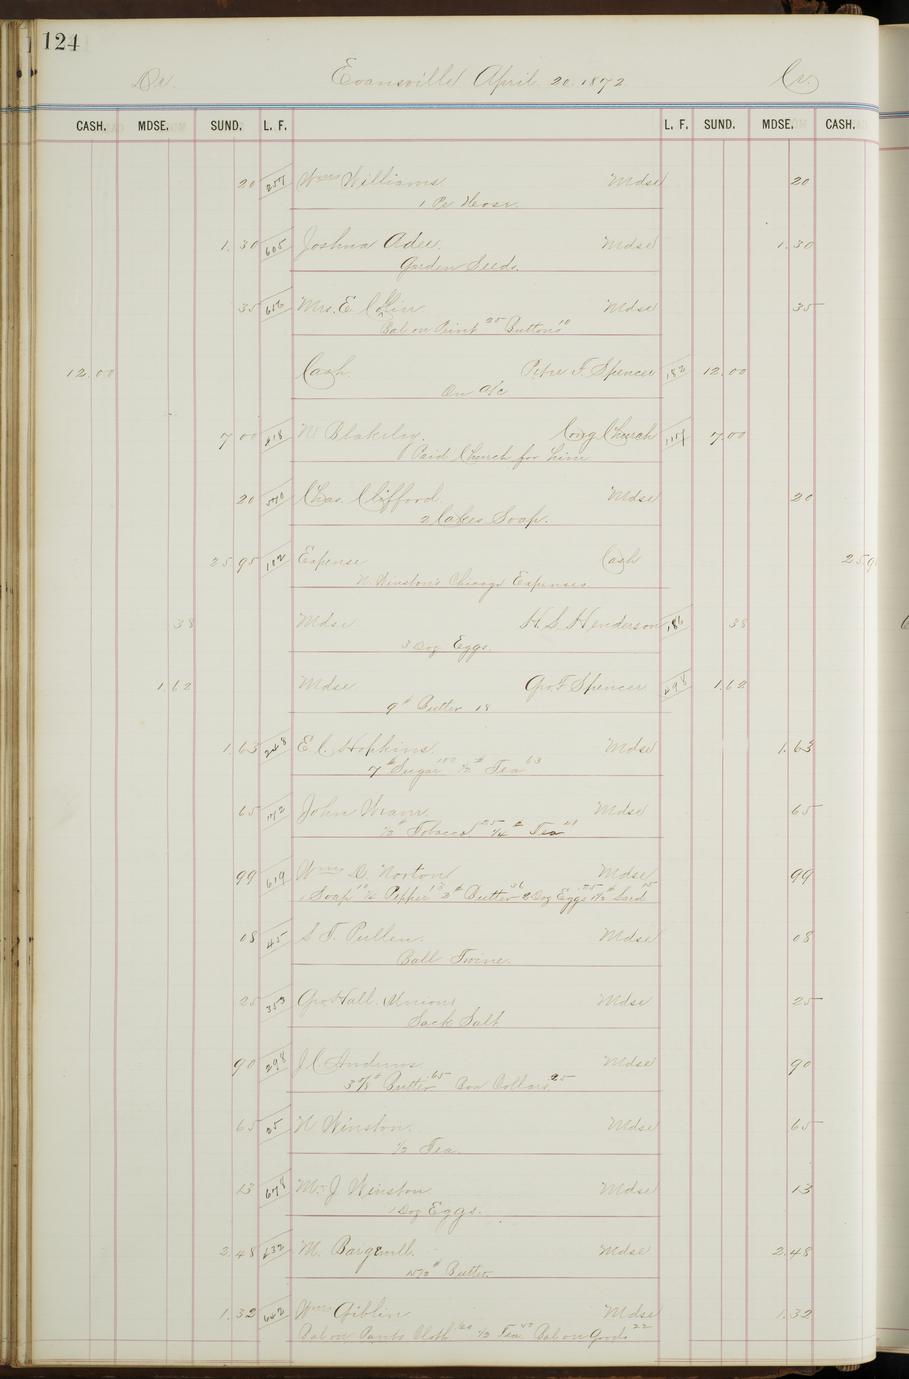 124
Dr. Evansville April 20 1872 Cr.
CASH. MDSE. SUND. L. F. L. F. SUND. MDSE. CASH.
20 257 Wm Williams Mdse 20
1 Pr Hose
1.30 605 Joshua Adee Mdse 1.30
Garden Seeds
35 656 Mrs. E. Mdse 35
Bal on Print 25 Buttons 10
12.00 Cash F. Spencer 182 12.00
On a/c
7 00 818 W Blakeley Cong Church 7.00
Paid Church for him
20 Chas. Clifford Mdse 20
2 Cakes Soap.
25.95 112 Expense Cash
N Winston's Chicago Expenses
38 Mdse H. S. Henderson 186 38
3 Doz Eggs.
1.62 Mdse Geo F Spencer 498 1.62
9# Butter 18
1.63 248 E. C. Hopkins Mdse 1.63
7# Sugar 100 1/2# Tea 63
65 172 John Mdse 65
1/2# Tobacco 25 1/4# Tea 40
99 619 Wm D. Norton Mdse 99
Soap 10 1/2 Pepper 13 2# Butter 36 2 Doz Eggs 25 1 1/2# Lard 15
08 45 S. T. Pullen Mdse 08
Ball Twine.
25 353 Geo Hall Union Mdse 25
Sack Salt
90 298 J. C Andrews Mdse 90
3 5/8# Butter 65 Box Collars 25
65 25 N Winston Mdse 65
1/2 Tea.
13 678 M. J Winston Mdse 13
1 Doz Eggs.
2.48 632 M. Mdse 2.48
Butter
1.32 642 Wm Giblin Mdse 1.32
Bal on Pants Cloth 1/2 Tea Bal on Goods 22